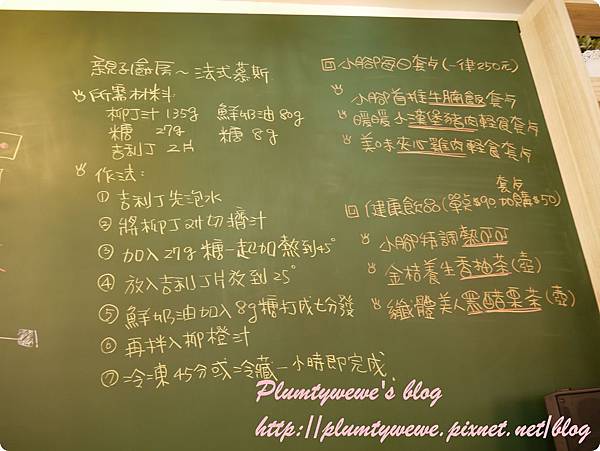 親子廚房~法式慕斯
所需材料:
柳丁汁 135g 鮮奶油 80g
糖 27g 糖 8g
吉利丁 2片
作法:
① 吉利丁先泡水
② 將柳丁對切擠汁
③ 加入27g糖一起加熱到45°
④ 放入吉利丁片放到25°
⑤ 鮮奶油加入8g糖打成七分發
⑥ 再拌入柳橙汁
⑦ 冷凍45分或冷藏一小時即完成.
回 小腳每日套卡(一律250元)
小腳首推生腩飯套卡
暖暖小漢堡豬肉輕食套卡
美味夾心雞肉輕食套卡
套卡
回 健康飲品(單點$90 加購$50)
小腳特調熱可可
金桔養生香柚茶(壺)
纖體美人黑醋栗茶(壺)
Plumtywewe's blog
http://plumtywewe.pixnet.net/blog